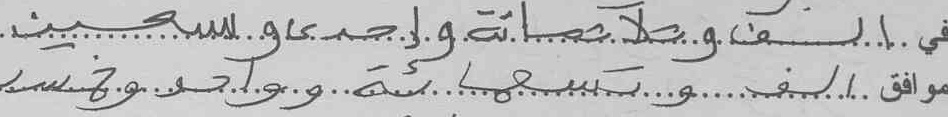 في الف و ثلاثمائة و إحدى و سبعين
موافق الف و تسعمائة و واحد و خمسين